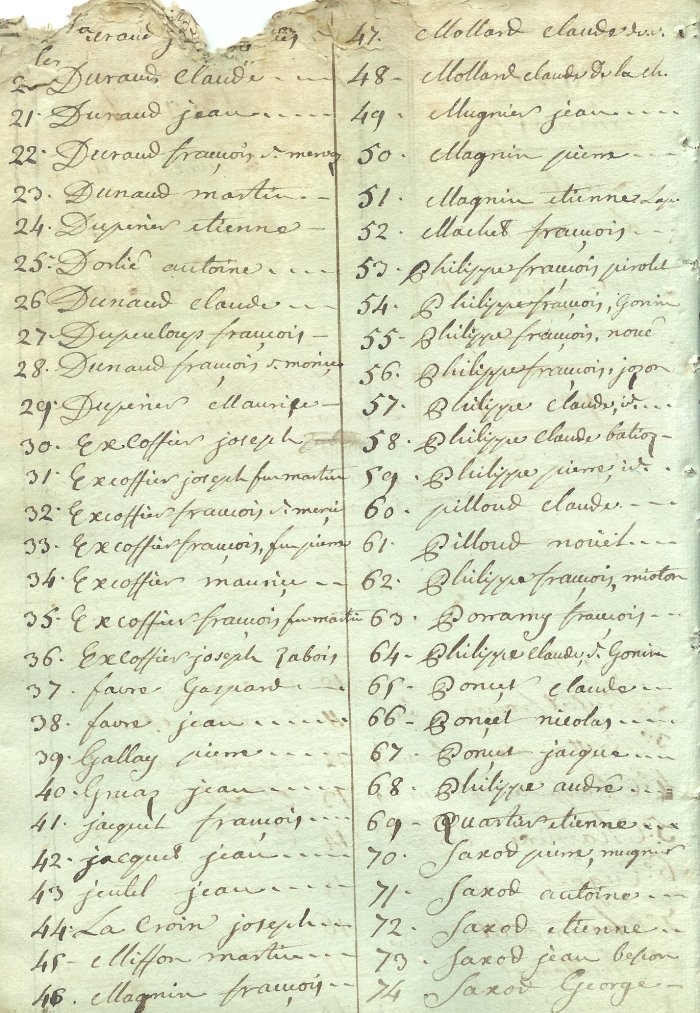 Durand Claude
21. Durand jean
22. Durand françois d. merog
23. Dunand martin
24. Duperier etienne
25. Dorlié antoine
26 Dunand claude
27. Dupenloup françois
28. Dunand françois d. morice
29. Duperier Maurice
30. Excoffier joseph
31. Excoffier joseph feu martin
32. Excoffier françois d.
33. Excoffier françois, feu pierre
34. Excoffier maurice
35. Excoffier françois feu martin
36. Excoffier joseph Zabois
37. favre Gaspard
38. favre jean
39. Gallay pierre
40. Gruaz jean
41. jacquet françois
42. jacquet jean
43 jean
44. La Croix joseph
45 Miffon martin
46. Magnin françois
47. Mollard claude
48. Mollard claude de la ch.
49. Mugnier jean
50. Magnin pierre
51. Magnin etienne
52. Machet françois
53. Philippe françois pirolet
54. Philippe françois, Gonin
55. Philippe françois, noué
56. Philippe françois, jozon
57. Philippe claude, id.
58. Philippe claude batioz
59. Philippe pierre, id.
60. pilloud claude
61. Pilloud nouët
62. Philippe françois, mioton
63. Porramy françois
64. Philippe claude d. Gonin
65. Ponçet claude
66. Ponçet nicolas
67. Ponçet jacque
68. Philippe andré
69. Quartier etienne
70. Saxod pierre, mugnier
71. Saxod antoine
72. Saxod etienne
73. Saxod jean besson
74 Saxod George